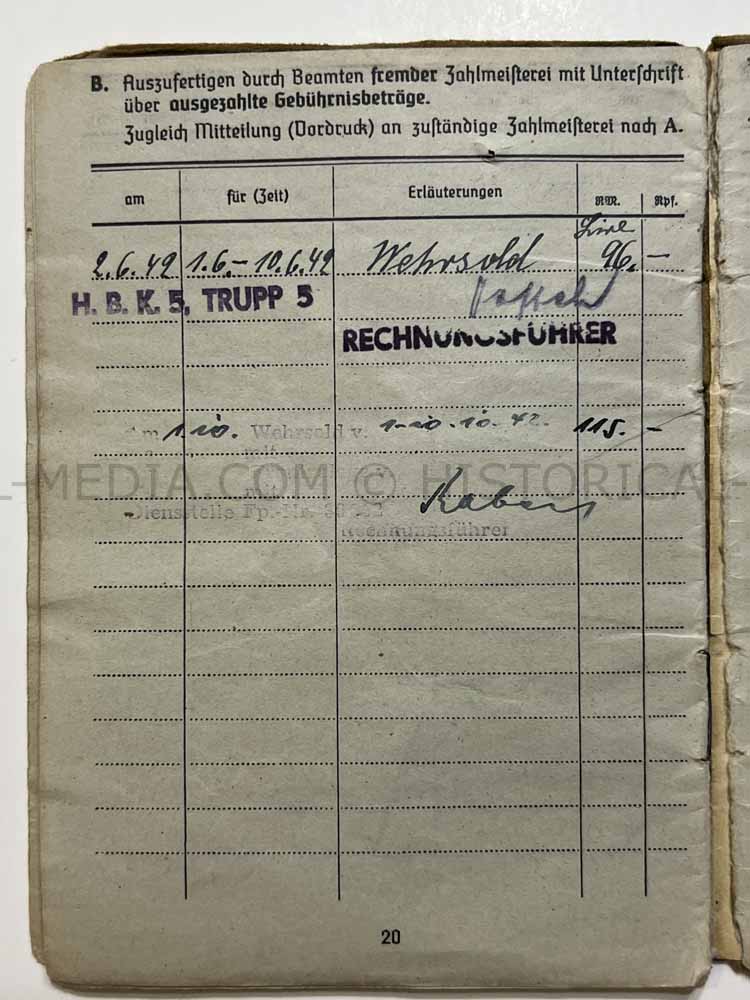 B. Auszufertigen durch Beamten fremder Zahlmeisterei mit Unterschrift
über ausgezahlte Gebührnisbeträge.
Zugleich Mitteilung (Vordruck) an zuständige Zahlmeisterei nach A.
am für (Zeit) Erläuterungen RM. Rpf.
Lire
2.6.42 1.6.- 10.6.42 Wehrsold 96.-
H. B. K. 5, TRUPP 5
RECHNUNGSFÜHRER
Am 1.10. Wehrsold v. 1.-10.10.42. 115.-
mit
L-MEDIA.COM © HISTORICAL-
Dienststelle Fp.-Nr.
Rechnungsführer
20